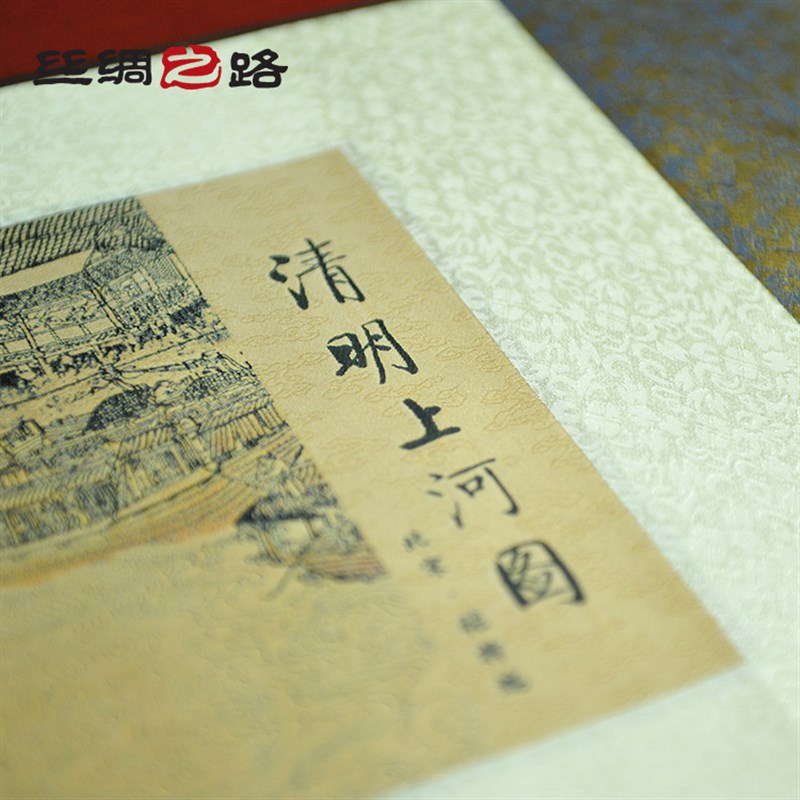 丝绸之路
清明上河图
北宋·张择端